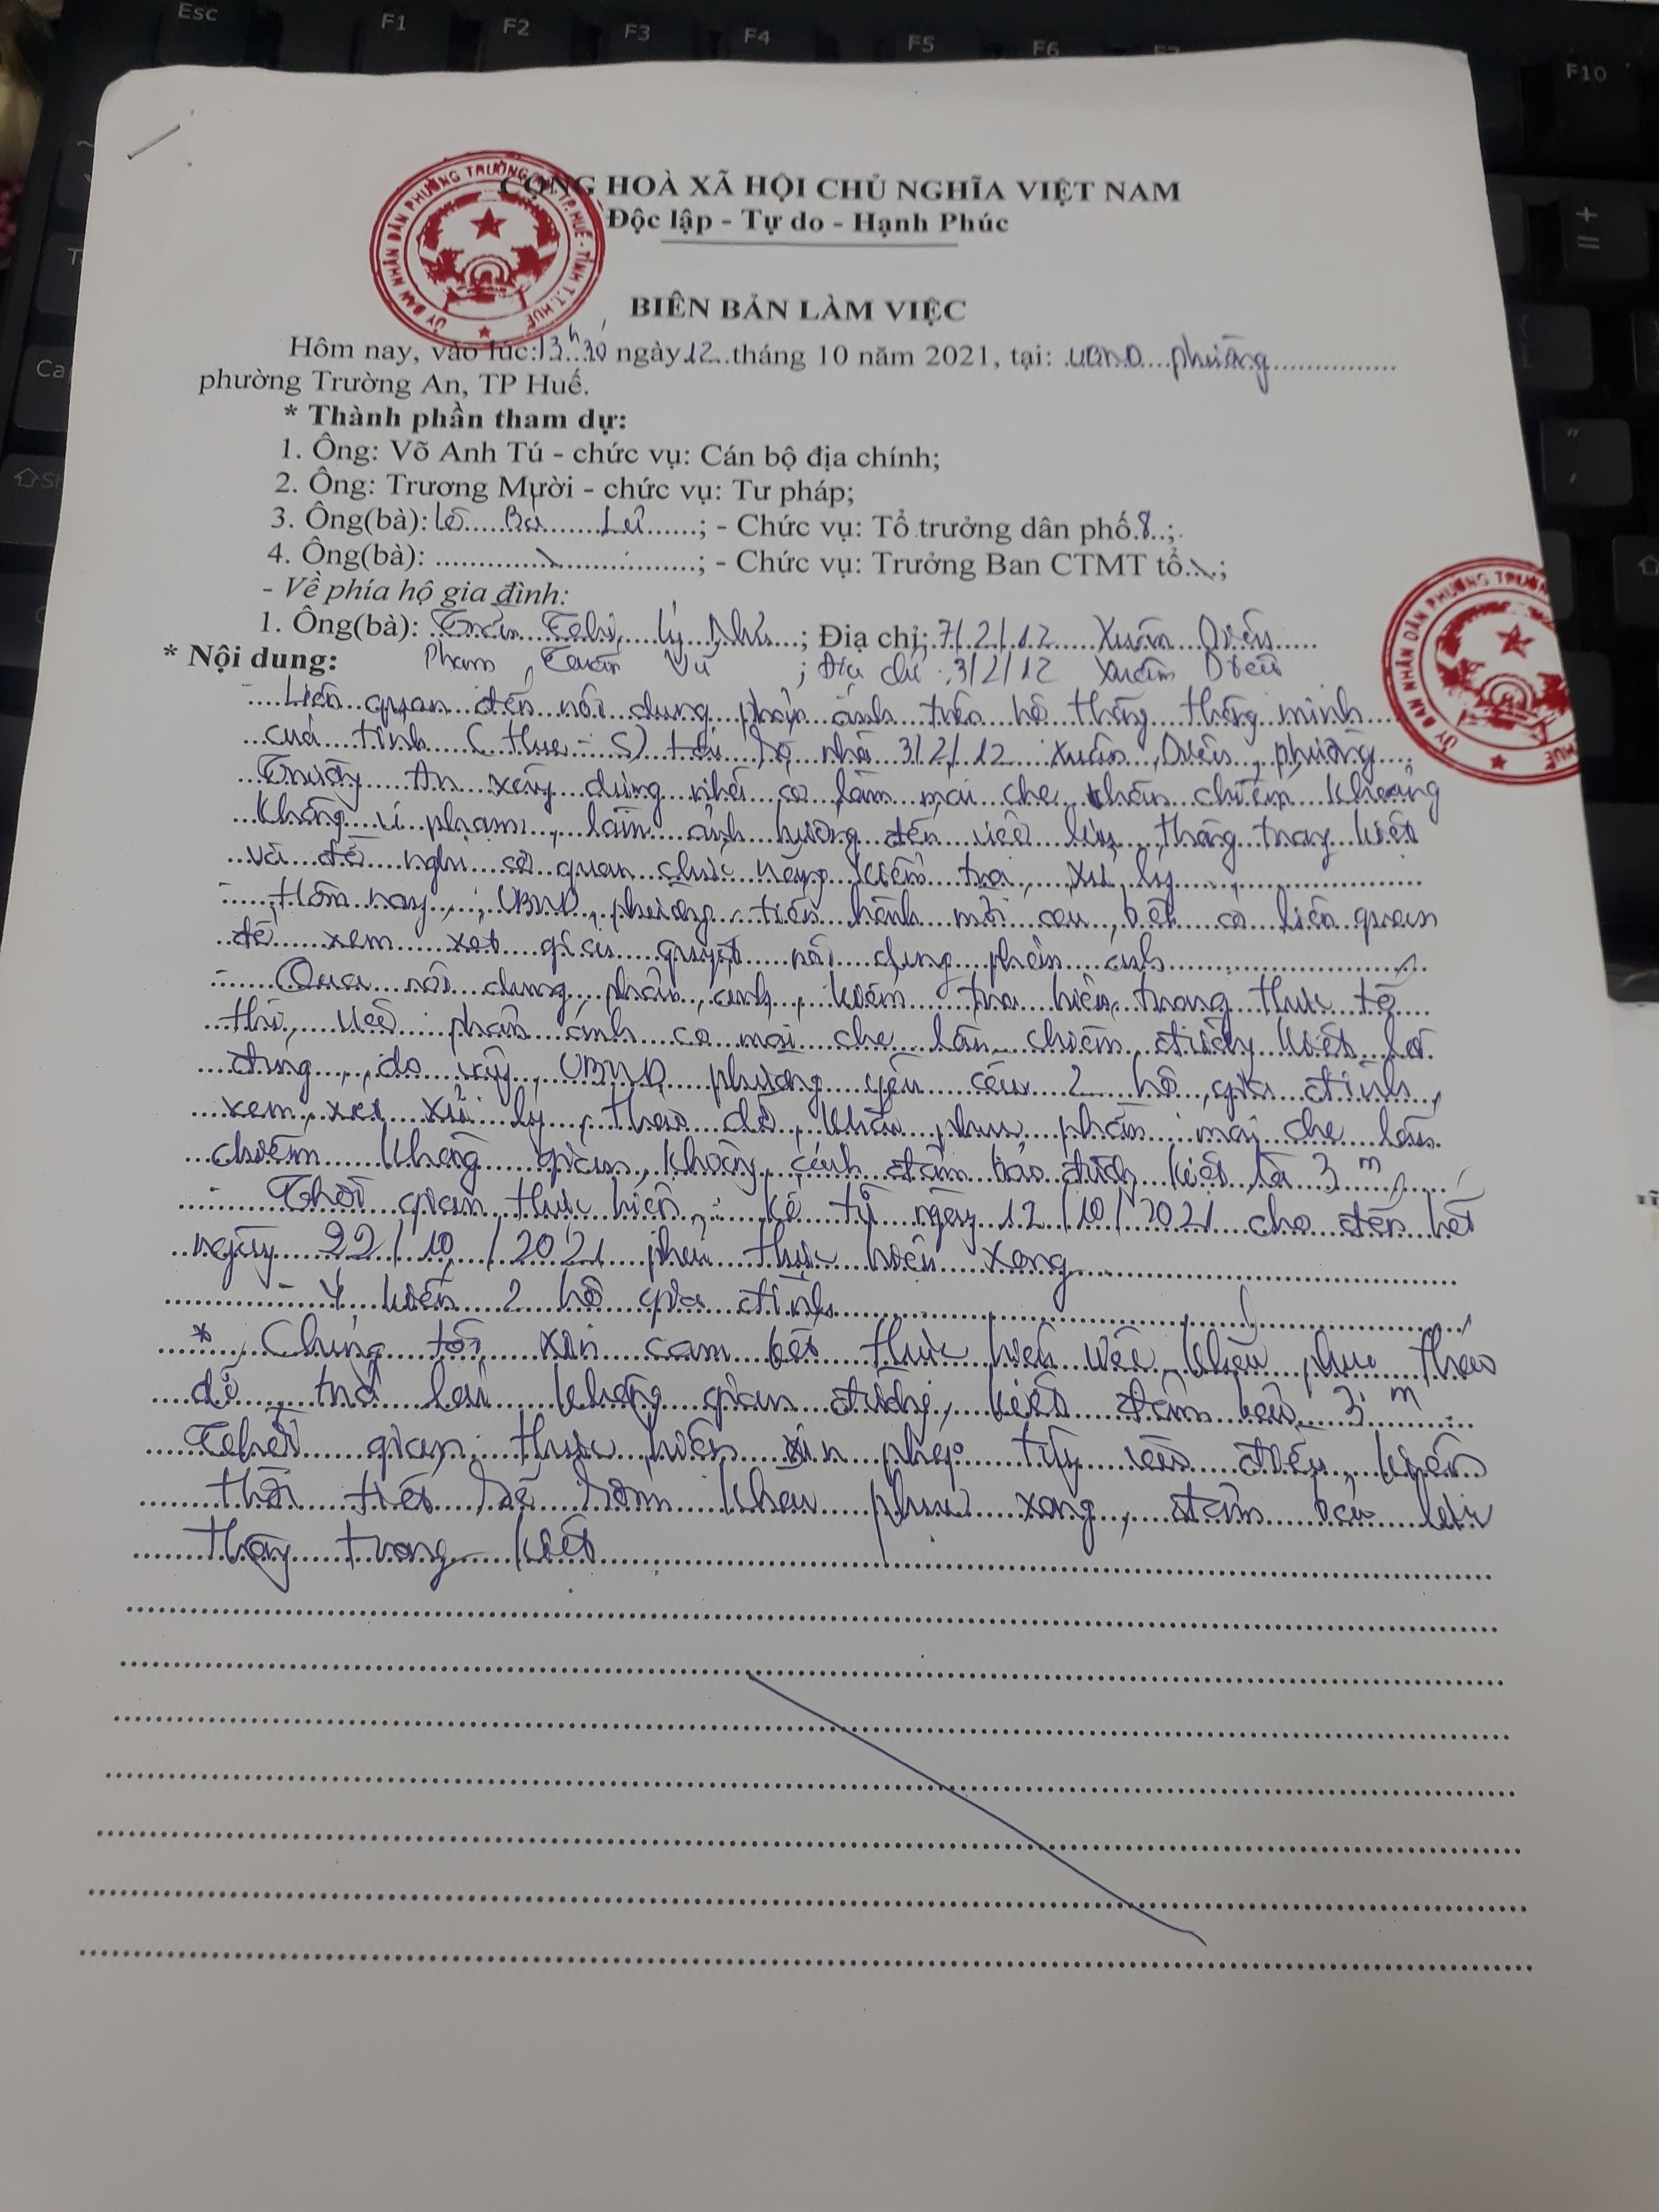 Esc F1 F2 F3 F4 F5 F6 F10
CỘNG HOÀ XÃ HỘI CHỦ NGHĨA VIỆT NAM
Độc lập - Tự do - Hạnh Phúc
ỦY BAN NHÂN DÂN PHƯỜNG TRƯỜNG TP. HUẾ - TỈNH T.T. HUẾ
BIÊN BẢN LÀM VIỆC
Hôm nay, vào lúc: 13h30 ngày 12 tháng 10 năm 2021, tại: UBND phường
phường Trường An, TP Huế.
* Thành phần tham dự:
1. Ông: Võ Anh Tú - chức vụ: Cán bộ địa chính;
2. Ông: Trương Mười - chức vụ: Tư pháp;
3. Ông(bà): Lê Bá ; - Chức vụ: Tổ trưởng dân phố 8 ;
4. Ông(bà): ; - Chức vụ: Trưởng Ban CTMT tổ ;
- Về phía hộ gia đình:
1. Ông(bà): Trần Thị Lý ; Địa chỉ: 7/2/12 Xuân Diệu
* Nội dung: Phạm Tuấn Vũ ; Địa chỉ: 3/2/12 Xuân Diệu
- Liên quan đến nội dung phản ánh trên hệ thống thông minh
của tỉnh (Hue-S) tại số nhà 3/2/12 Xuân Diệu, phường
Trường An xây dựng nhà có làm mái che lấn chiếm khoảng
không vi phạm, làm ảnh hưởng đến việc lưu thông trong kiệt
và đề nghị cơ quan chức năng kiểm tra, xử lý
- Hôm nay, UBND phường tiến hành mời các bên có liên quan
để xem xét giải quyết nội dung phản ánh
- Qua nội dung phản ánh, kiểm tra hiện trạng thực tế
thì việc phản ánh có mái che lấn chiếm đường kiệt là
đúng, do vậy UBND phường yêu cầu 2 hộ gia đình
xem xét xử lý, tháo dỡ, khắc phục phần mái che lấn
chiếm không gian, khoảng cách đảm bảo đường kiệt là 3m
- Thời gian thực hiện: kể từ ngày 12/10/2021 cho đến hết
ngày 22/10/2021 phải thực hiện xong
- Ý kiến 2 hộ gia đình
* Chúng tôi xin cam kết thực hiện việc khắc phục tháo
dỡ, trả lại không gian đường kiệt đảm bảo 3m
Thời gian thực hiện xin phép tùy vào điều kiện
thời tiết sẽ sớm khắc phục xong, đảm bảo lưu
thông trong kiệt
ỦY BAN NHÂN DÂN PHƯỜNG HUẾ